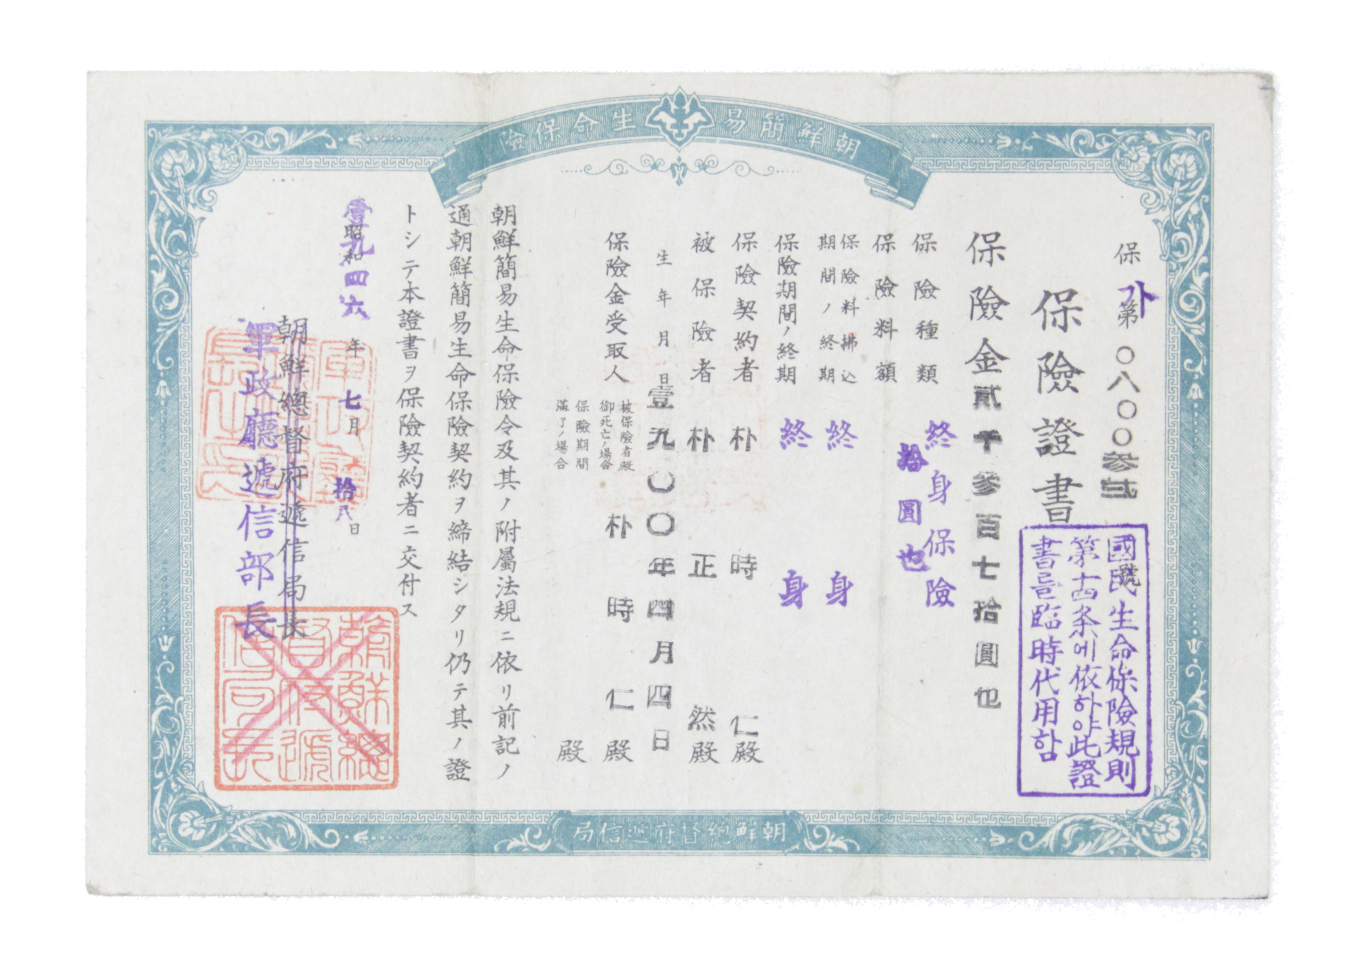 朝鮮簡易生命保險
保가第〇八〇〇參貳號
保險證書
國民生命保險規則
第十四条에依하야此證
書를臨時代用함
保險金貳千參百七拾圓也
保險種類 終身保險
保險料額 拾圓也
保險料拂込期間ノ終期 終身
保險期間ノ終期 終身
保險契約者 朴時仁殿
被保險者 朴正然殿
生年月日 壹九〇〇年四月四日
保險金受取人
被保險者殿
御死亡ノ場合
朴時仁殿
保險期間
滿了ノ場合
殿
朝鮮簡易生命保險令及其ノ附屬法規ニ依リ前記ノ
通朝鮮簡易生命保險契約ヲ締結シタリ仍テ其ノ證
トシテ本證書ヲ保險契約者ニ交付ス
昭和
壹九四六年七月拾八日
朝鮮總督府遞信局長
軍政廳遞信部長
朝鮮總督府遞信局